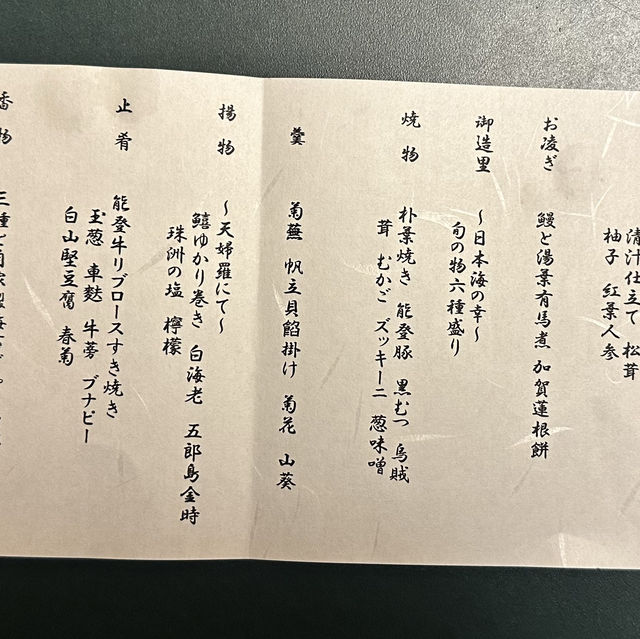 清汁仕立て 松茸
柚子 紅葉人参
お凌ぎ
鰻と湯葉有馬煮 加賀蓮根餅
御造里
〜日本海の幸〜
旬の物六種盛り
焼物
朴葉焼き 能登豚 黒むつ 烏賊
茸 むかご ズッキーニ 葱味噌
羹
菊蕪 帆立貝餡掛け 菊花 山葵
揚物
〜天婦羅にて〜
鱚ゆかり巻き 白海老 五郎島金時
珠洲の塩 檸檬
止肴
能登牛リブロースすき焼き
玉葱 車麩 牛蒡 ブナピー
白山堅豆腐 春菊
香物
三種と自家製